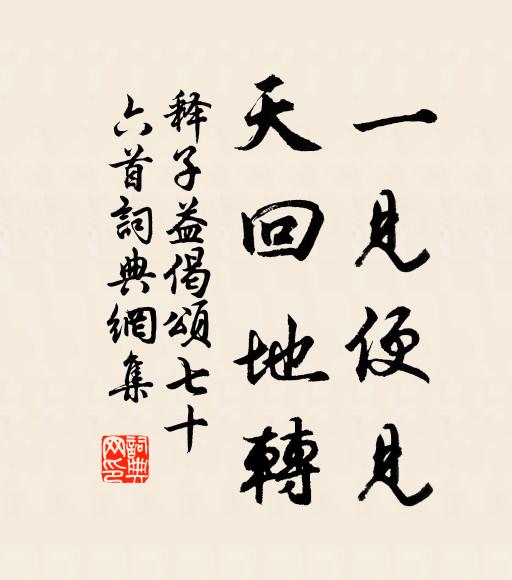 一見便見
天回地轉
釋子益偈頌七十
六首詞典網集
詞典
网印